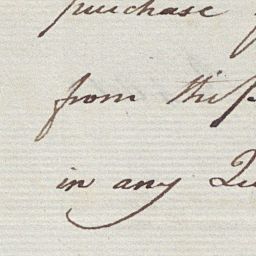 purchase
from this
in any